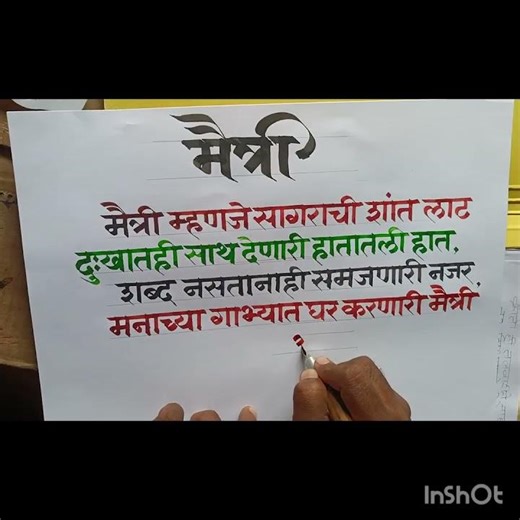 मैत्री
मैत्री म्हणजे सागराची शांत लाट
दुःखातही साथ देणारी हातातली हात,
शब्द नसतानाही समजणारी नजर,
मनाच्या गाभ्यात घर करणारी मैत्री
InShOt